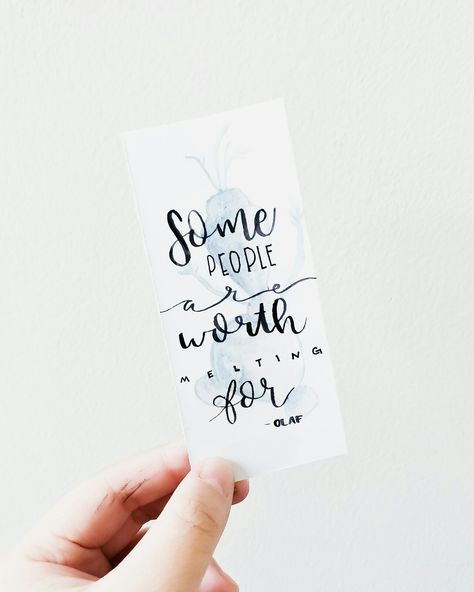 Some
PEOPLE
are
worth
MELTING
for
- OLAF